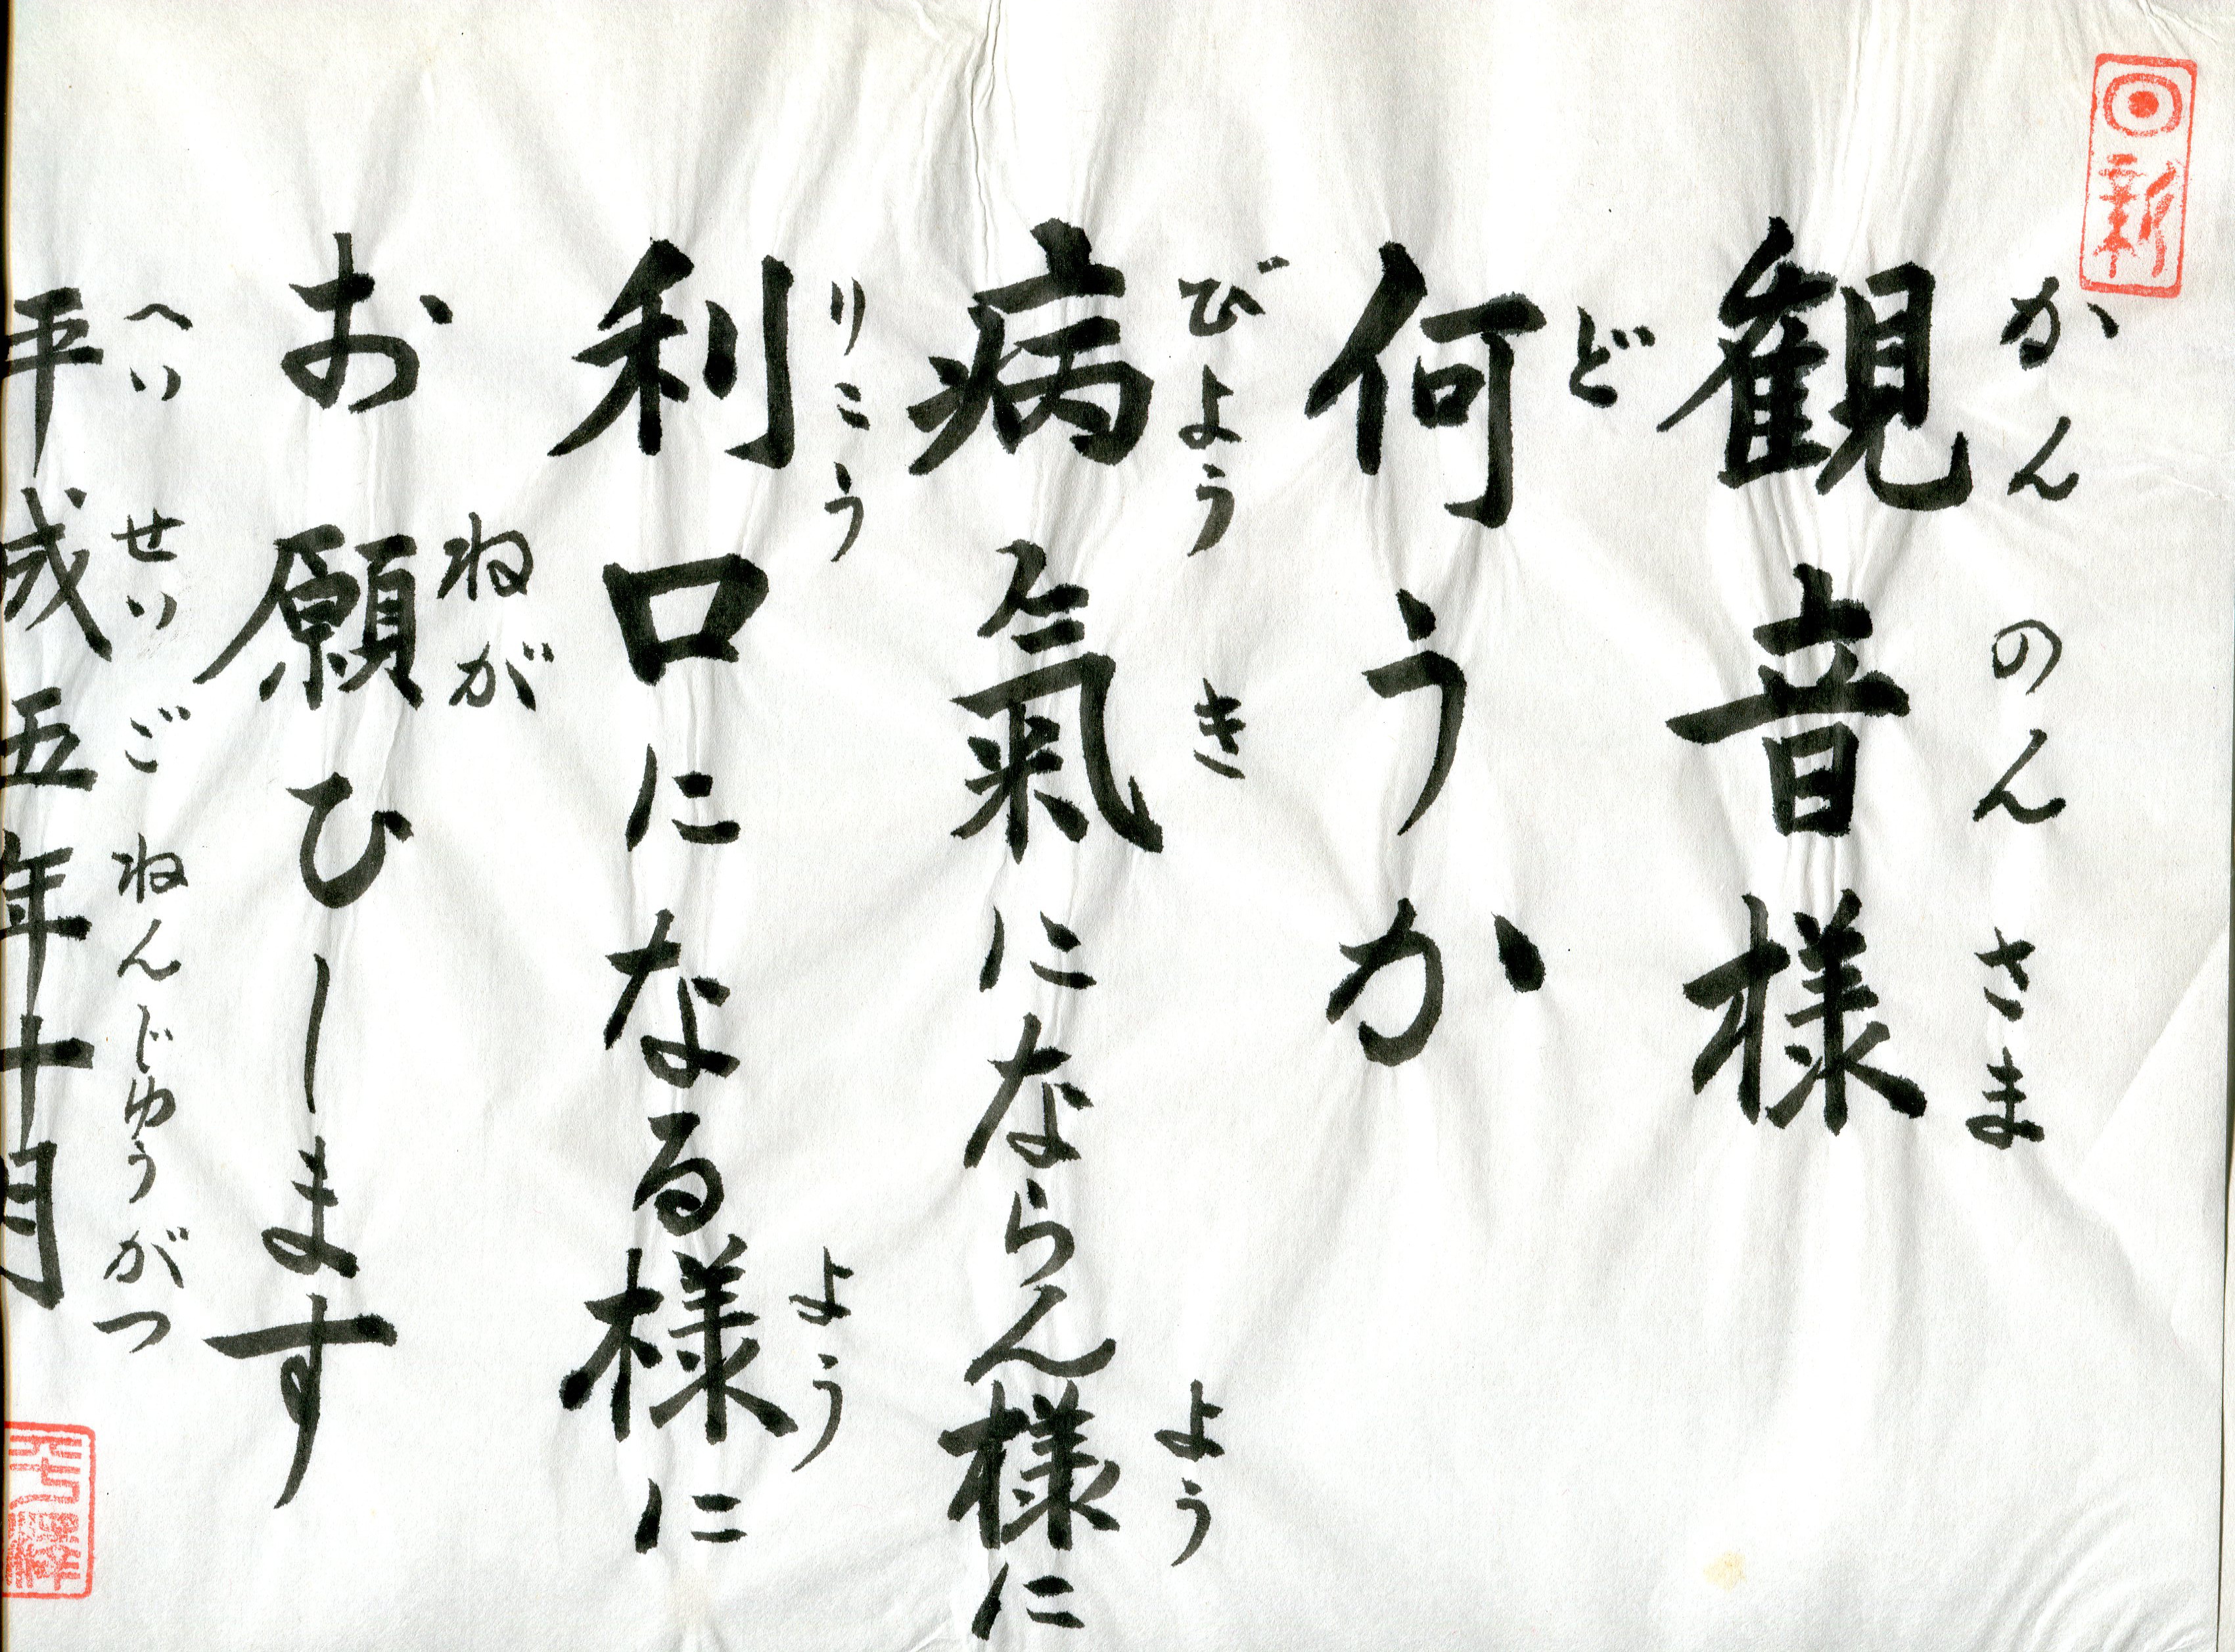 かんのんさま
観音様
ど
何うか
びようき よう
病氣にならん様に
りこう よう
利口になる様に
ねが
お願ひします
へいせいごねんじゆうがつ
平成五年十月
日新